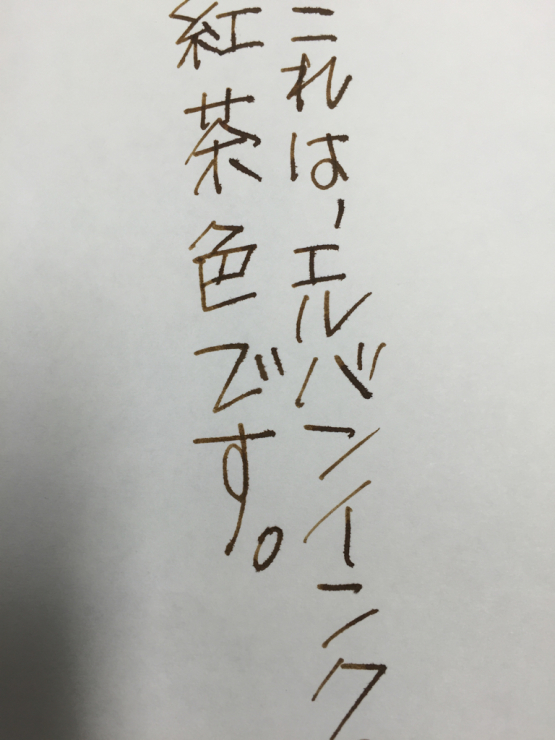 これは、エルバンインク
紅茶色です。